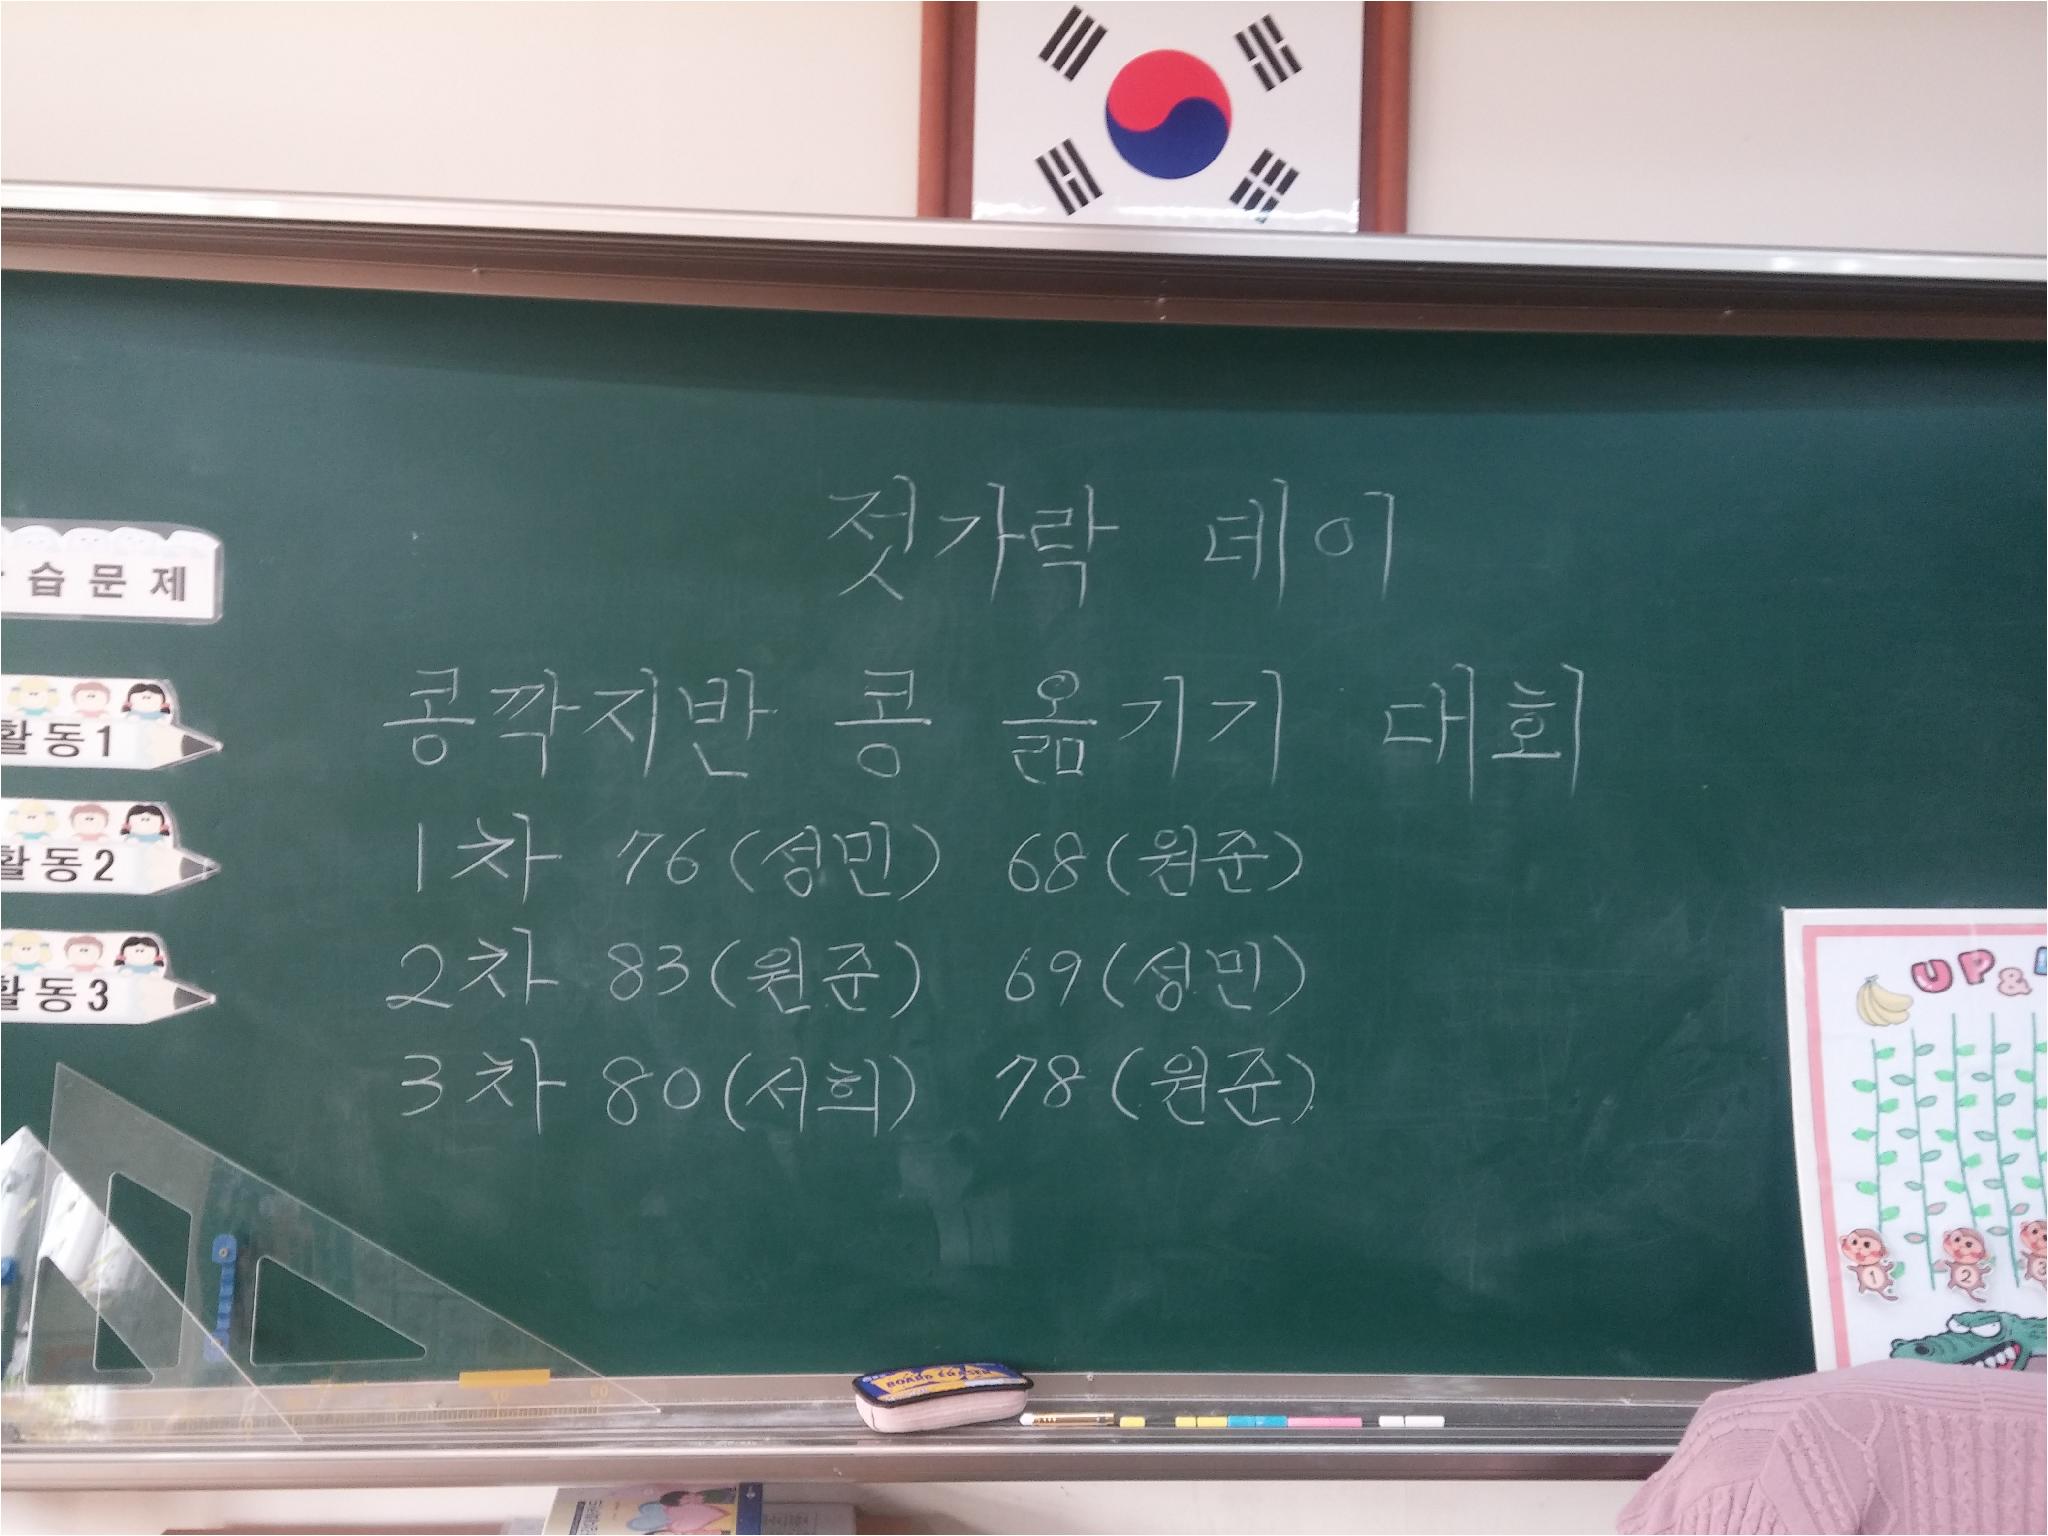 젓가락 데이
콩깍지반 콩 옮기기 대회
1차 76(성민) 68(원준)
2차 83(원준) 69(성민)
3차 80(서희) 78(원준)
습문제
활동1
활동2
활동3
UP&
1
2
3
BOARD ERASER